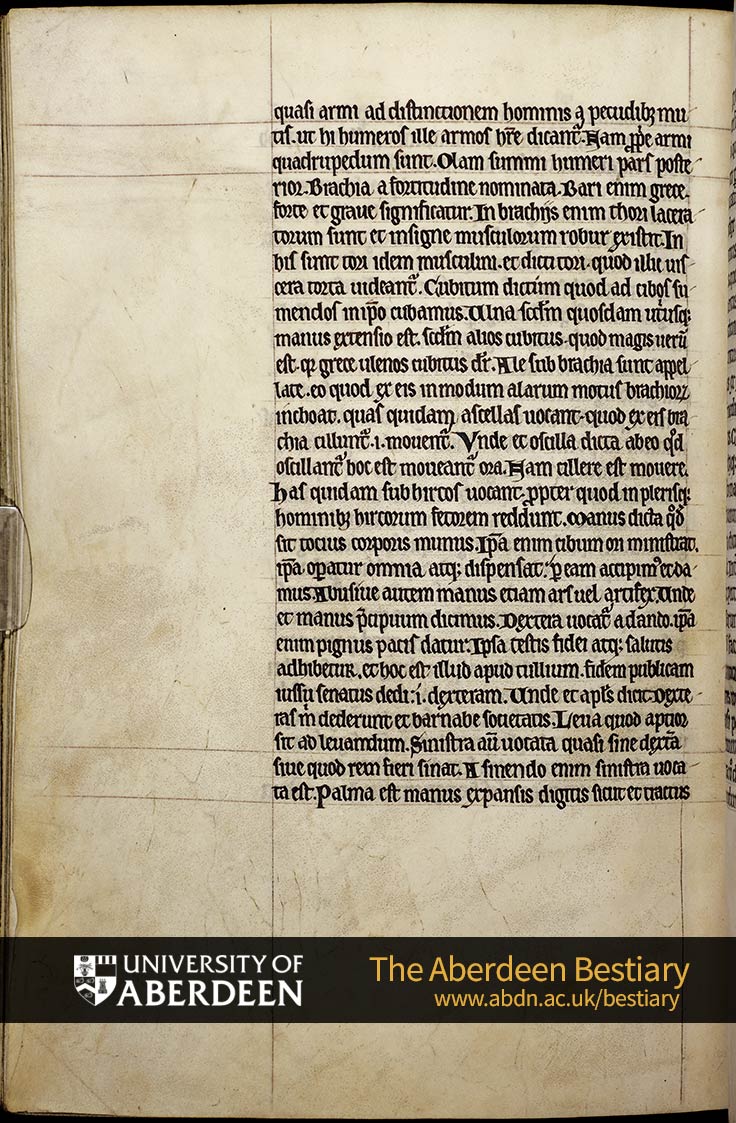 quasi armi ad distinctionem hominis a pecudibꝫ mu
tis. ut hi humeros ille armos hr̄e dicant᷑. Nam ꝓpͥe armi
quadrupedum sunt. Olam summi humeri pars poste
rior. Brachia a fortitudine nominata. Bari enim grece.
forte et graue significatur. In brachiis enim thori lacera
torum sunt et insigne musculorum robur existit. In
his sunt tori idem musculini. et dicti tori. quod illic uis
cera torta uideant᷑. Cubitum dictum quod ad cibos su
mendos in ip̄o cubamus. Ulna scd̄m quosdam utͥusqꝫ
manus extensio est. scd̄m alios cubitus. quod magis uerū
est. qꝛ grece ulenos cubitus dr̄. Ale sub brachia sunt appel
late. eo quod ex eis in modum alarum motus brachioꝝ
inchoat. quas quidam ascellas uocant. quod ex eis bra
chia cillunt᷑ .i. mouent᷑. Vnde et oscilla dicta ab eo qd̄
oscillant᷑ hoc est moueant᷑ ora. Nam cillere est mouere.
has quidam subhircos uocant. ꝓpter quod in plerisqꝫ
hominibꝫ hircorum fetorem reddunt. Manus dicta qd̄
sit tocius corporis munus. Ip̄a enim cibum ori ministrat.
ip̄a oꝑatur omnia atqꝫ dispensat. ꝑ eam accipimꝰ et da
mus. Abusiue autem manus etiam ars uel artifex. Unde
et manus p̄cipuum dicimus. Dextera uocat᷑ a dando. ip̄a
enim pignus pacis datur. Ipsa testis fidei atqꝫ salutis
adhibetur. et hoc est illud apud tullium. fidem publicam
iussu senatus dedi .i. dexteram. Unde et apl̄s dicit. Dexte
ras mͥ dederunt et barnabe societatis. Leua quod aptior
sit ad leuamdum. Sinistra aū uocata quasi sine dext̄a
siue quod rem fieri sinat. A sinendo enim sinistra uoca
ta est. Palma est manus expansis digitis sicut et tractus
UNIVERSITY OF
ABERDEEN
The Aberdeen Bestiary
www.abdn.ac.uk/bestiary